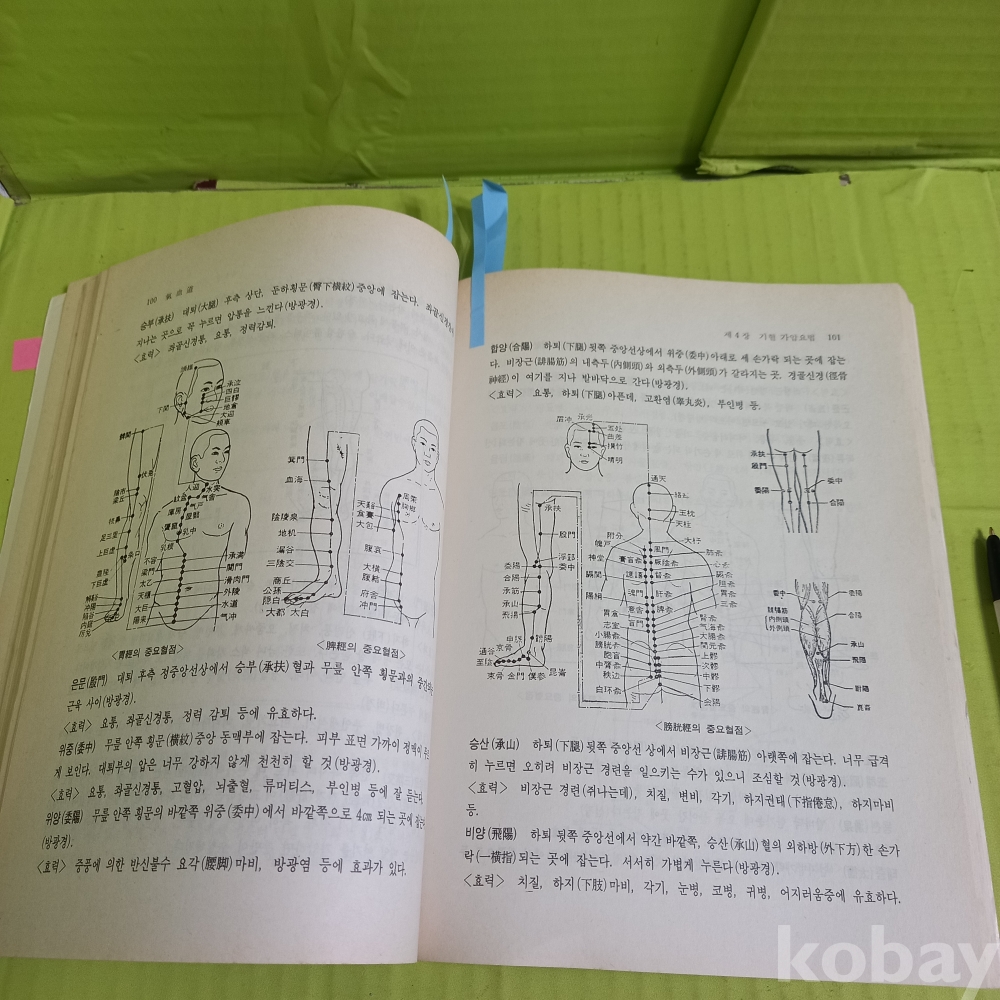 100 氣血道
승부(承扶) 대퇴(大腿) 후측 상단, 둔하횡문(臀下橫紋)중앙에 잡는다. 좌골신경
지나는 곳으로 꼭 누르면 압통을 느낀다(방광경).
<효력> 좌골신경통, 요통, 정력감퇴.
承泣
四白
巨髎
地倉
大迎
頰車
下關
頭維
髀關
伏兎
陰市
梁丘
足三里
上巨虛
下巨虛
人迎
水突
气舍
缺盆
气戶
庫房
乳中
乳根
不容
承滿
梁門
關門
太乙
滑肉門
天樞
外陵
大巨
水道
气冲
箕門
血海
陰陵泉
地机
漏谷
三陰交
商丘
公孫
隱白
大都 太白
周栄
天谿
食竇
大包
腹哀
大橫
腹結
府舍
冲門
<胃經의 중요혈점>
<脾經의 중요혈점>
은문(殷門) 대퇴 후측 정중앙선상에서 승부(承扶)혈과 무릎 안쪽 횡문과의 중간의
근육 사이(방광경).
<효력> 요통, 좌골신경통, 정력 감퇴 등에 유효하다.
위중(委中) 무릎 안쪽 횡문(橫紋)중앙 동맥부에 잡는다. 피부 표면 가까이 정맥이
게 보인다. 대퇴부의 앞은 너무 강하지 않게 천천히 할 것(방광경).
<효력> 요통, 좌골신경통, 고혈압, 뇌출혈, 류머티스, 부인병 등에 잘 듣는다.
위양(委陽) 무릎 안쪽 횡문의 바깥쪽 위중(委中)에서 바깥쪽으로 4cm 되는 곳에 잡는
(방광경).
<효력> 중풍에 의한 반신불수 요각(腰脚)마비, 방광염 등에 효과가 있다.
제 4 장 기혈 가압요법 101
합양(合陽) 하퇴(下腿)뒷쪽 중앙선상에서 위중(委中)아래로 세 손가락 되는 곳에 잡는
다. 비장근(腓腸筋)의 내측두(內側頭)와 외측두(外側頭)가 갈라지는 곳. 경골신경(徑骨
神經)이 여기를 지나 발바닥으로 간다(방광경).
<효력> 요통, 하퇴(下腿)아픈데, 고환염(睾丸炎), 부인병 등.
眉冲 承光
五处
曲差
攅竹
睛明
通天
絡却
玉枕
天柱
大杼
附分
魄戶
風門
神堂
膈關
魂門
陽綱
意舍
胃倉
肓門
志室
小腸兪
膀胱兪
胞肓
中膂兪
秩边
白环兪
肺兪
心兪
膈兪
胆兪
胃兪
三兪
腎兪
气海兪
大腸兪
関元兪
上髎
次髎
中髎
下髎
会陽
承扶
殷門
浮郄
委中
委陽
合陽
承筋
承山
飛揚
申脉
京骨
通谷
至陰
束骨 金門 僕参
崑崙
跗陽
承扶
殷門
委陽
委中
合陽
委中
委陽
腓腸筋
內側頭
外側頭
合陽
承山
飛陽
跗陽
崑崙
<膀胱經의 중요혈점>
승산(承山) 하퇴(下腿)뒷쪽 중앙선 상에서 비장근(腓腸筋)아랫쪽에 잡는다. 너무 급격
히 누르면 오히려 비장근 경련을 일으키는 수가 있으니 조심할 것(방광경).
<효력> 비장근 경련(쥐나는데), 치질, 변비, 각기, 하지권태(下指倦怠), 하지마비
등.
비양(飛陽) 하퇴 뒷쪽 중앙선에서 약간 바깥쪽, 승산(承山)혈의 외하방(外下方)한 손가
락(一橫指)되는 곳에 잡는다. 서서히 가볍게 누른다(방광경).
<효력> 치질, 하지(下肢)마비, 각기, 눈병, 코병, 귀병, 어지러움증에 유효하다.
kobay